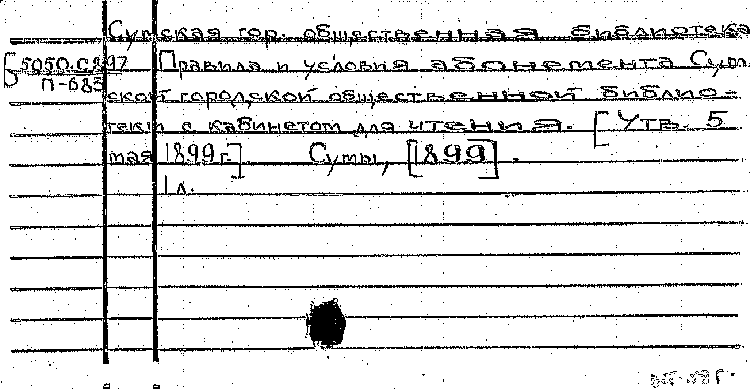 Сумская гор. общественная библиотека
[5050.c897 Правила и условия абонемента Сум-
П-683 ской городской общественной библио-
теки с кабинетом для чтения. [Утв. 5
мая 1899 г.] Сумы, [1899].
1 л.